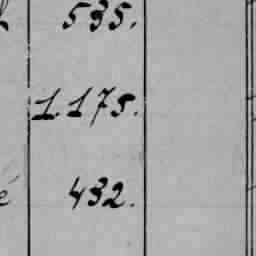 535.
1.175.
é 432.